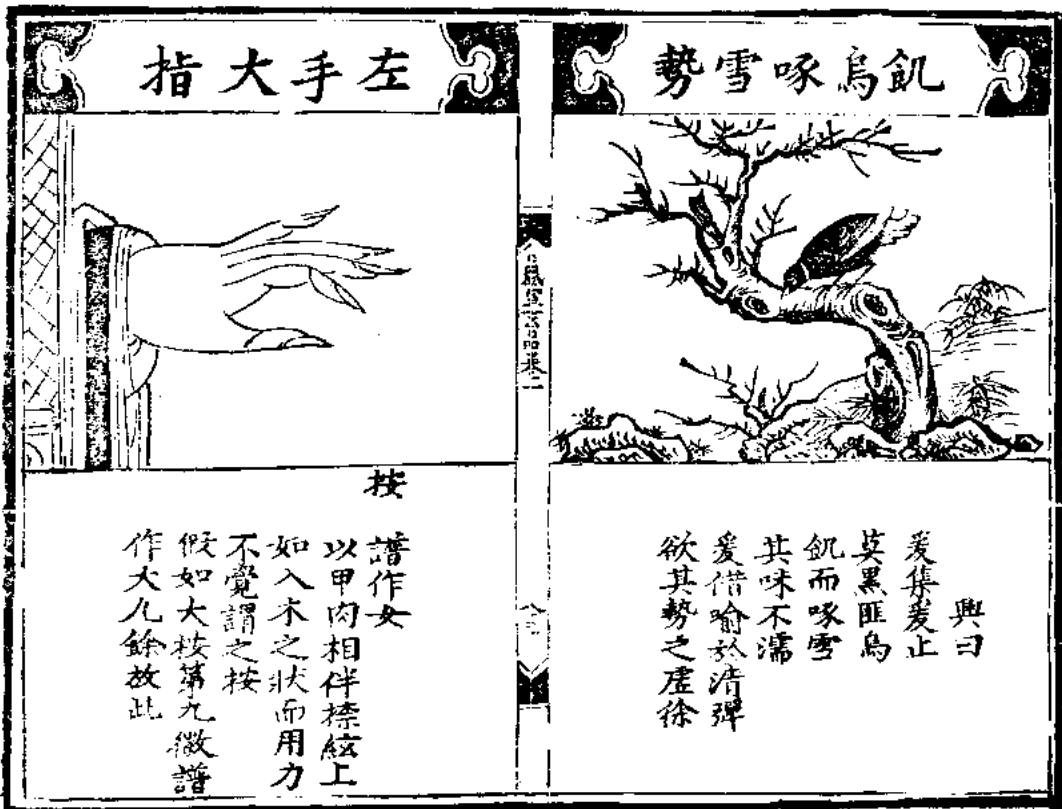 飢烏啄雪勢
興曰
爰集爰止
莫黑匪烏
飢而啄雪
其味不濡
爰借喻於清彈
欲其勢之虛徐
左手大指
按
譜作女
以甲肉相伴捺絃上
如入木之狀而用力
不覺謂之按
假如大按第九徽譜
作大九餘放此